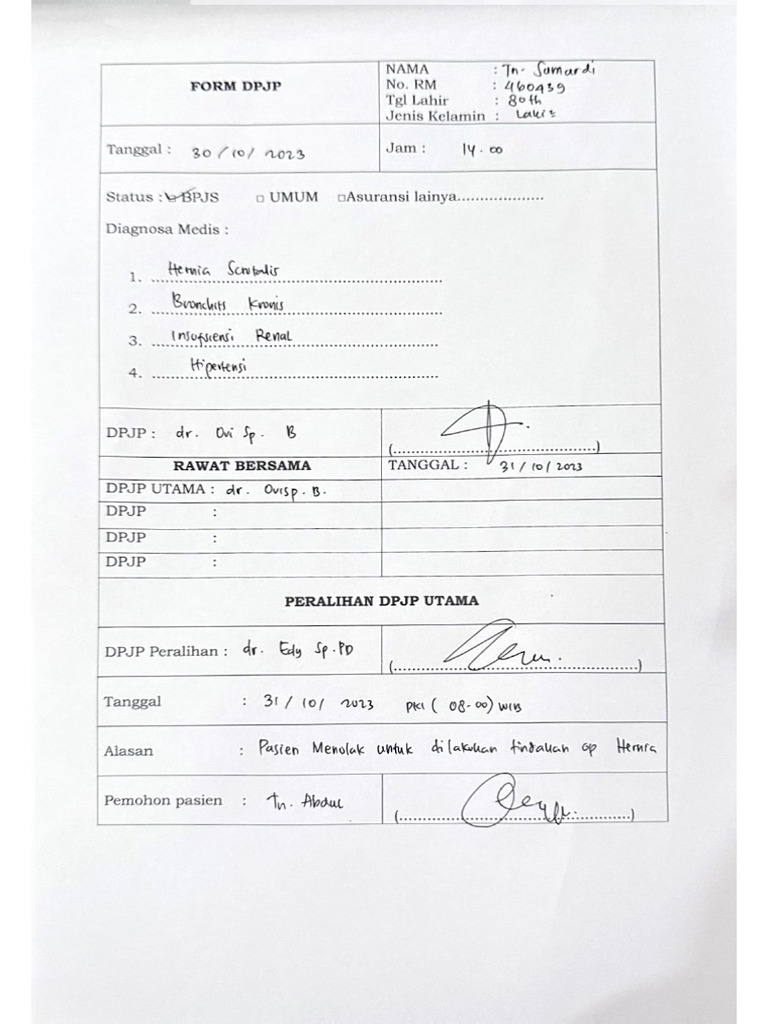 FORM DPJP
NAMA : Tn. Samardi
No. RM : 460439
Tgl Lahir : 80th
Jenis Kelamin : Laki2
Tanggal : 30/10/2023
Jam : 14.00
Status : BPJS UMUM Asuransi lainya...................
Diagnosa Medis :
1. Hernia Scrotalis
2. Bronchits Kronis
3. Insufsiensi Renal
4. Hipertensi
DPJP : dr. Ovi Sp. B
(..................................................)
RAWAT BERSAMA
TANGGAL : 31/10/2023
DPJP UTAMA : dr. Ovi sp. B.
DPJP :
DPJP :
DPJP :
PERALIHAN DPJP UTAMA
DPJP Peralihan : dr. Edy Sp.PD
(..................................................)
Tanggal : 31/10/2023 pkl (08.00) WIB
Alasan : Pasien Menolak untuk dilakukan tindakan op Hernia
Pemohon pasien : Tn. Abdul
(..................................................)